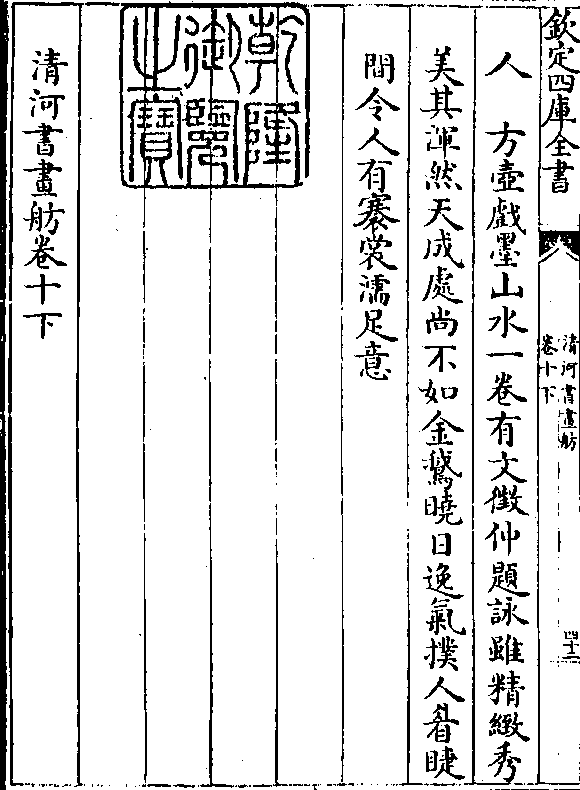 欽定四庫全書
清河書畫舫
卷十下
四十二
人　方壺戲墨山水一卷有文徵仲題詠雖精緻秀
美其渾然天成處尚不如金鵞曉日逸氣撲人眉睫
間令人有褰裳濡足意
乾隆
御覽
之寶
清河書畫舫卷十下